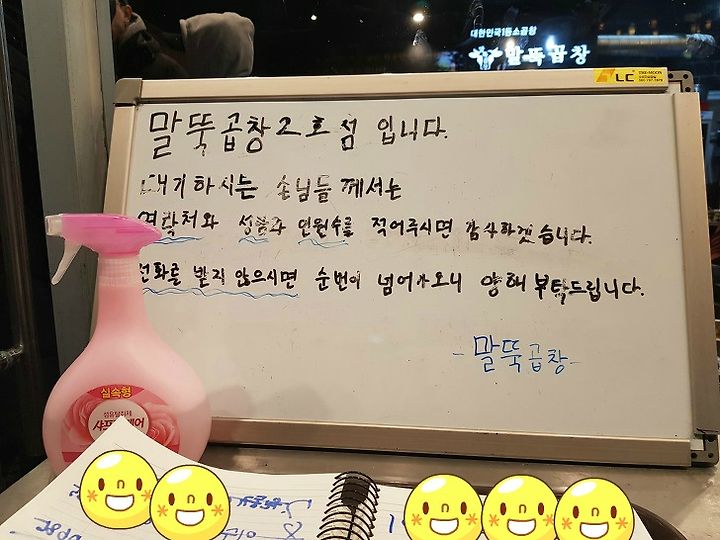 대한민국1등소곱창
말뚝곱창
LC
말뚝곱창 2호점 입니다.
대기하시는 손님들께서는
연락처와 성함과 인원수를 적어주시면 감사하겠습니다.
전화를 받지 않으시면 순번이 넘어가오니 양해 부탁드립니다.
-말뚝곱창-
실속형
섬유탈취제